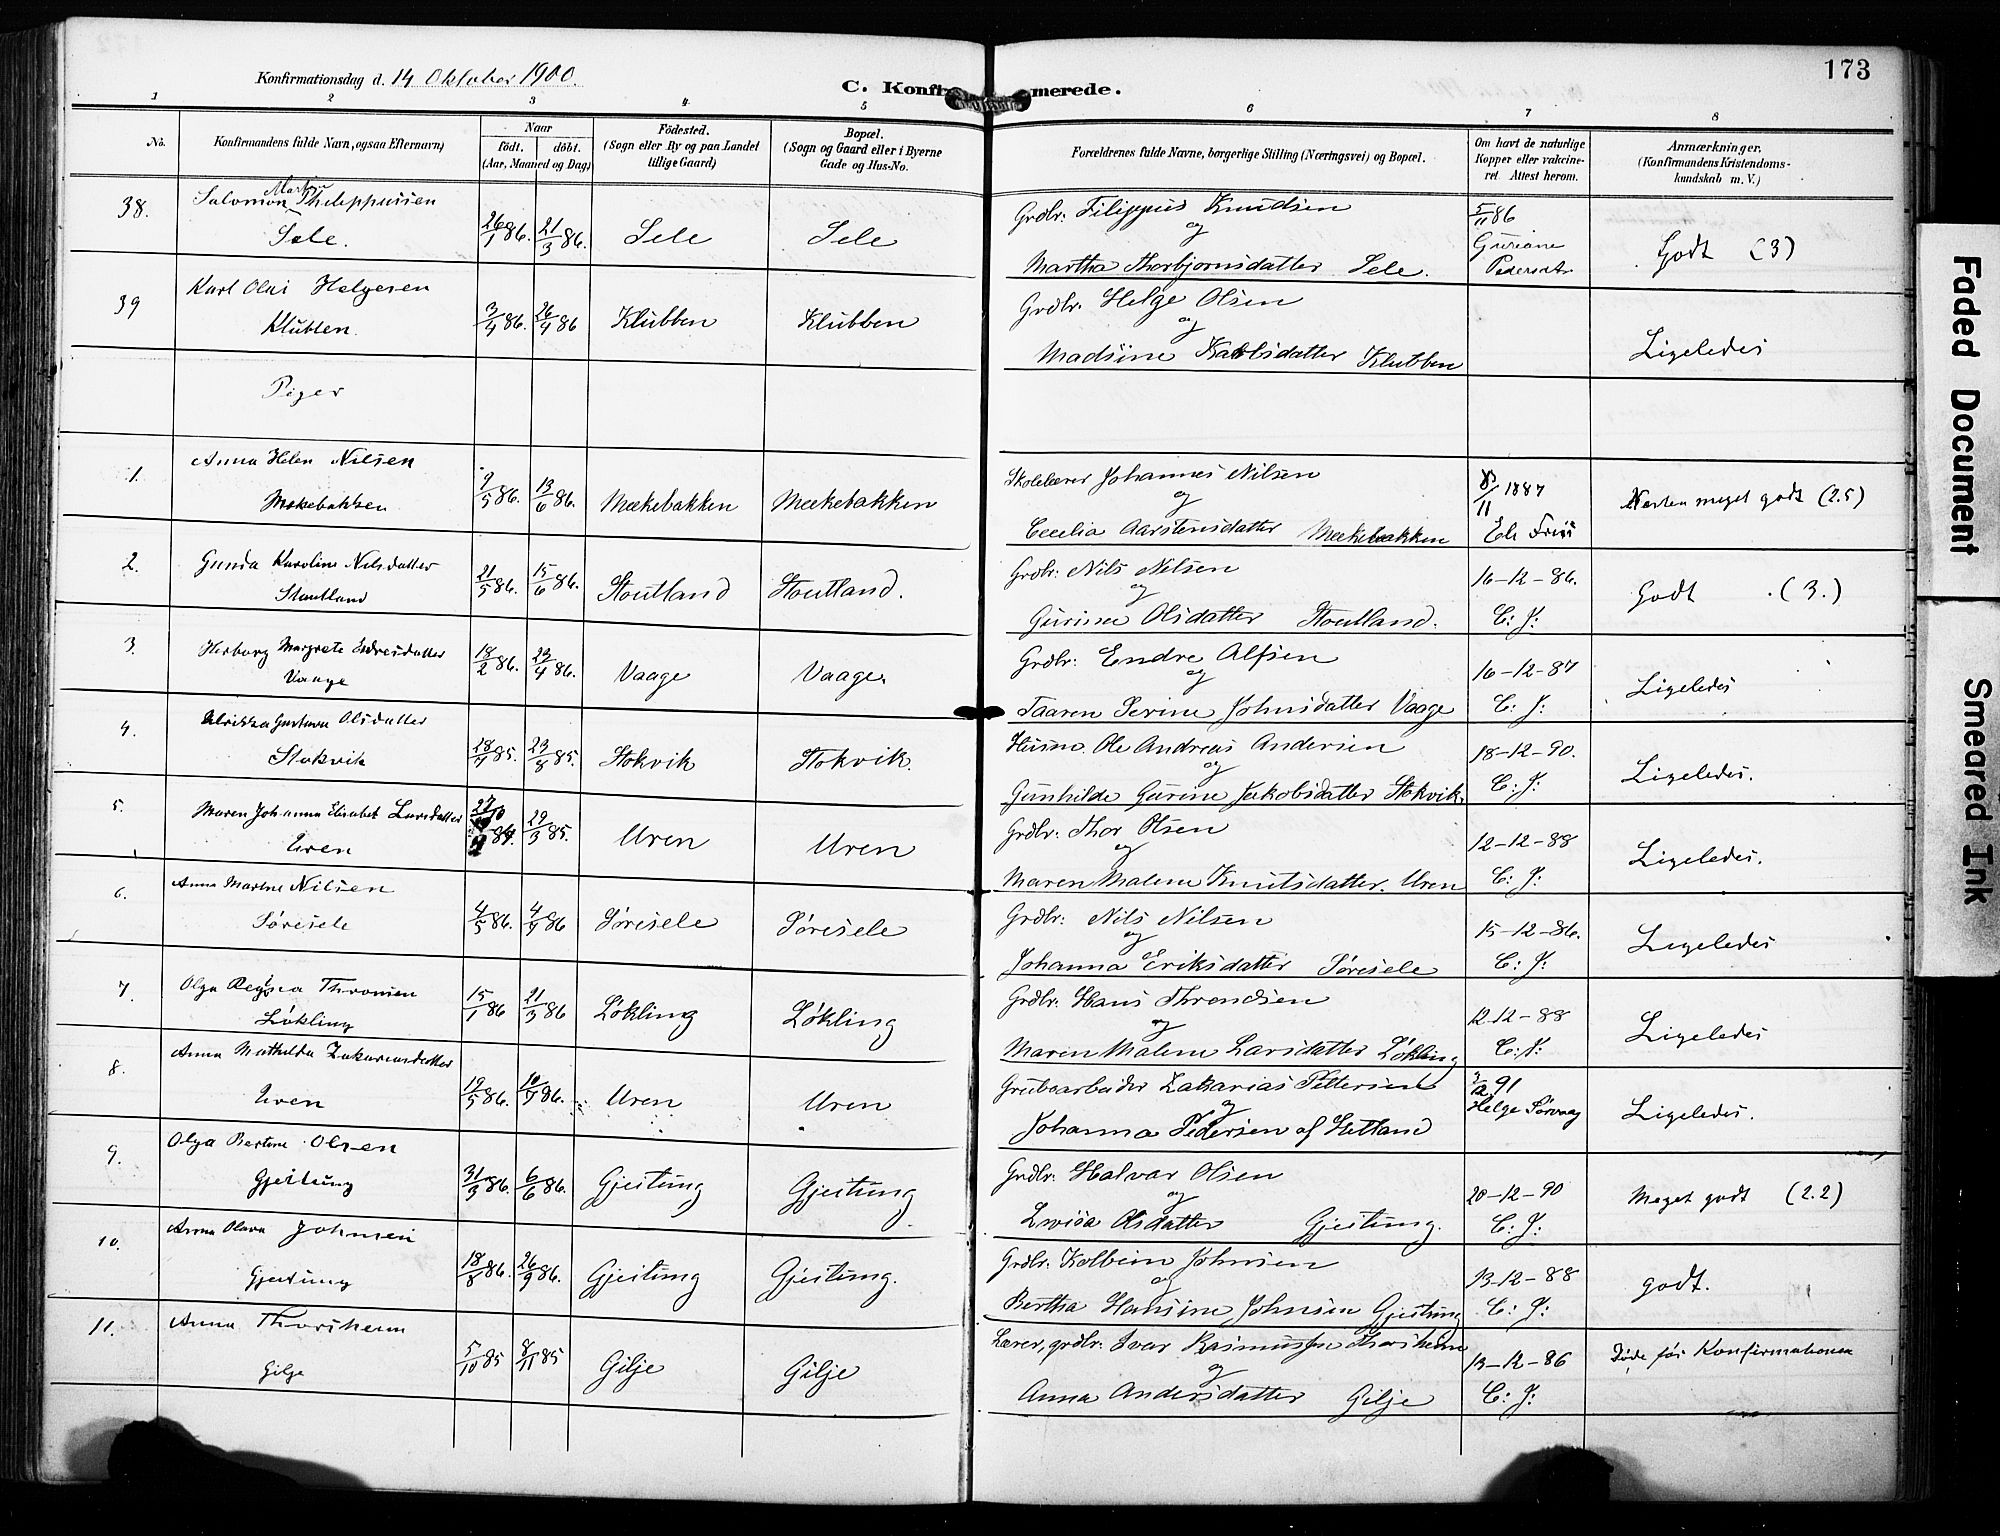 173
Konfirmationsdag d. 14 Oktober 1900.
C. Konfirmerede.
1 2 3 4 5 6 7 8
No.
Konfirmandens fulde Navn, ogsaa Efternavn)
Naar
født. døbt.
(Aar, Maaned og Dag)
Fødested.
(Sogn eller By og paa Landet
tillige Gaard)
Bopæl.
(Sogn og Gaard eller i Byerne
Gade og Hus-No.
Forældrenes fulde Navne, borgerlige Stilling (Næringsvei) og Bopæl.
Om havt de naturlige
Kopper eller vakcine-
ret Attest herom.
Anmærkninger.
(Konfirmandens Kristendoms-
kundskab m. V.)
38. Salomon Martin Philippussen
Sele. 26/1 86. 21/3 86. Sele Sele
Grdbr: Filippus Knudsen
og
Martha Thorbjornsdatter Sele.
5/11 86
Guriane
Pedersdtr
Godt (3)
39 Karl Olai Helgesen
Klubben. 3/4 86. 26/4 86 Klubben Klubben
Grdbr. Helge Olsen
og
Madsine Karlsdatter Klubben
Ligeledes
Piger
1. Anna Helen Nilsen
Mækebakken 9/5 86. 13/6 86. Mækebakken Mækebakken
Skolelærer Johannes Nilsen
og
Cecelia Aarstensdatter Mækebakken
8/11 1887
Ele Friis
Næsten meget godt (2.5)
2. Gunda Karoline Nilsdatter
Stoutland 21/5 86. 15/6 86. Stoutland Stoutland.
Grdbr: Nils Nilsen
og
Gurine Olsdatter Stoutland.
16-12-86.
C: J:
Godt (3.)
3. Herborg Margrete Endresdatter
Vaage 18/2 86. 23/4 86. Vaage Vaage.
Grdbr: Endre Alfsen
og
Taaren Serine Johnsdatter Vaage
16-12-87
C: J:
Ligeledes
4. Ulrikka Gustava Olsdatter
Stokvik 28/4 85. 23/8 85. Stokvik Stokvik.
Husm. Ole Andreas Andersen
og
Gunhilde Gurine Jakobsdatter Stokvik.
18-12-90.
C: J:
Ligeledes.
5. Maren Johanna Elisabet Larsdatter
Uren 84. 29/3 85. Uren Uren
Grdbr: Thor Olsen
og
Maren Malene Knutsdatter. Uren
12-12-88
C: J:
Ligeledes.
6. Anna Marlene Nilsen
Søresele 4/5 86. 4/7 86 Søresele Søresele
Grdbr: Nils Nilsen
og
Johanna Eriksdatter Søresele
15-12-86.
C: J:
Ligeledes
7. Olga Thronsen
Løkling 15/1 86 21/3 86 Løkling Løkling
Grdbr: Hans Throndsen
og
Maren Malene Larsdatter Løkling
12-12-88
C: J:
Ligeledes
8. Anna Mathilda Zakariasdatter
Uren 19/5 86. 10/7 86. Uren Uren
Grubearbeider Zakarias Pettersen
og
Johanna Pedersen af Hetland
3/12 91
Helge Sørvaag
Ligeledes.
9. Olga Bertine Olsen
Gjeitung 31/3 86. 6/6 86. Gjeitung Gjeitung.
Grdbr: Halvar Olsen
og
Lovisa Olsdatter Gjeitung.
20-12-90
C: J:
Meget godt (2.2)
10. Anna Olava Johnsen
Gjeitung 18/8 86. 26/9 86. Gjeitung Gjeitung.
Grdbr: Kolbein Johnsen
og
Bertha Hansine Johnsen Gjeitung
13-12-88
C: J:
godt.
11. Anna Thorsheim
Gilje 5/10 85 8/11 85 Gilje Gilje
Lærer, grdbr: Ivar Rasmussen Thorsheim
og
Anna Andersdatter Gilje
13-12-86
C: J:
Døde før Konfirmationen
Faded Document
Smeared Ink